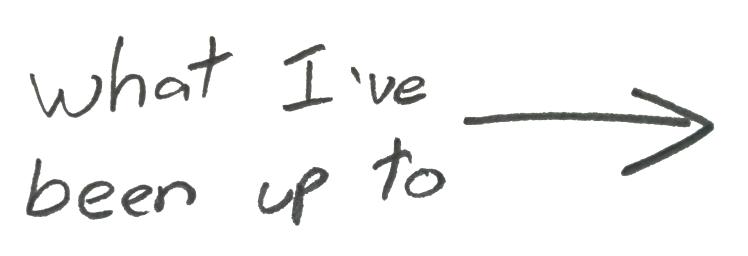 what I've
been up to